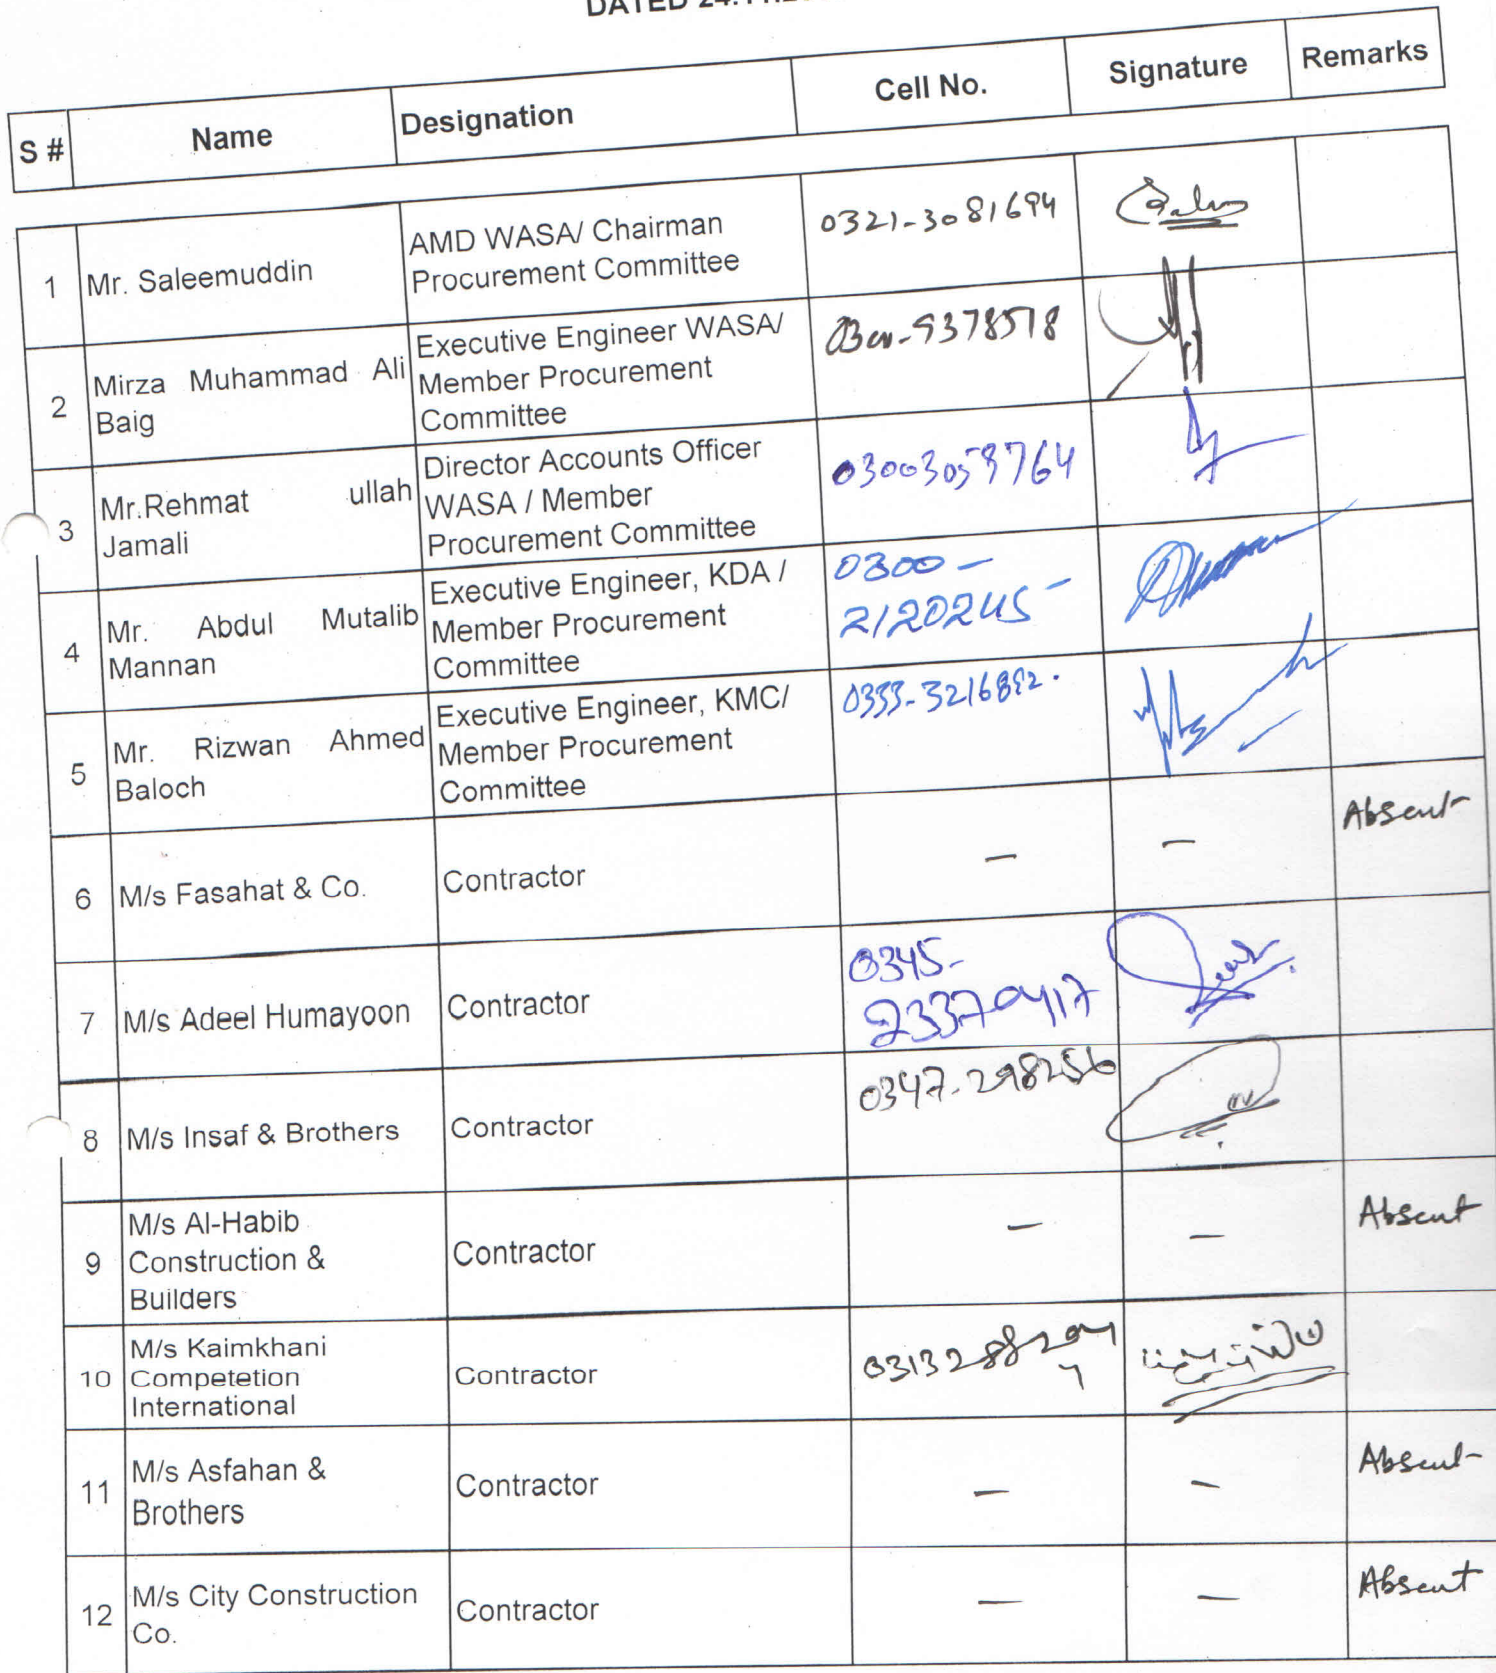 DATED 24.11.20
S #
Name
Designation
Cell No.
Signature
Remarks
1
Mr. Saleemuddin
AMD WASA/ Chairman
Procurement Committee
0321-3081694
2
Mirza Muhammad Ali
Baig
Executive Engineer WASA/
Member Procurement
Committee
3
Mr.Rehmat ullah
Jamali
Director Accounts Officer
WASA / Member
Procurement Committee
4
Mr. Abdul Mutalib
Mannan
Executive Engineer, KDA /
Member Procurement
Committee
0300-
2120245-
5
Mr. Rizwan Ahmed
Baloch
Executive Engineer, KMC/
Member Procurement
Committee
6
M/s Fasahat & Co.
Contractor
—
—
Absent
7
M/s Adeel Humayoon
Contractor
0345-
8
M/s Insaf & Brothers
Contractor
0347-298256
9
M/s Al-Habib
Construction &
Builders
Contractor
—
—
Absent
10
M/s Kaimkhani
Competetion
International
Contractor
11
M/s Asfahan &
Brothers
Contractor
—
—
Absent
12
M/s City Construction
Co.
Contractor
—
—
Absent